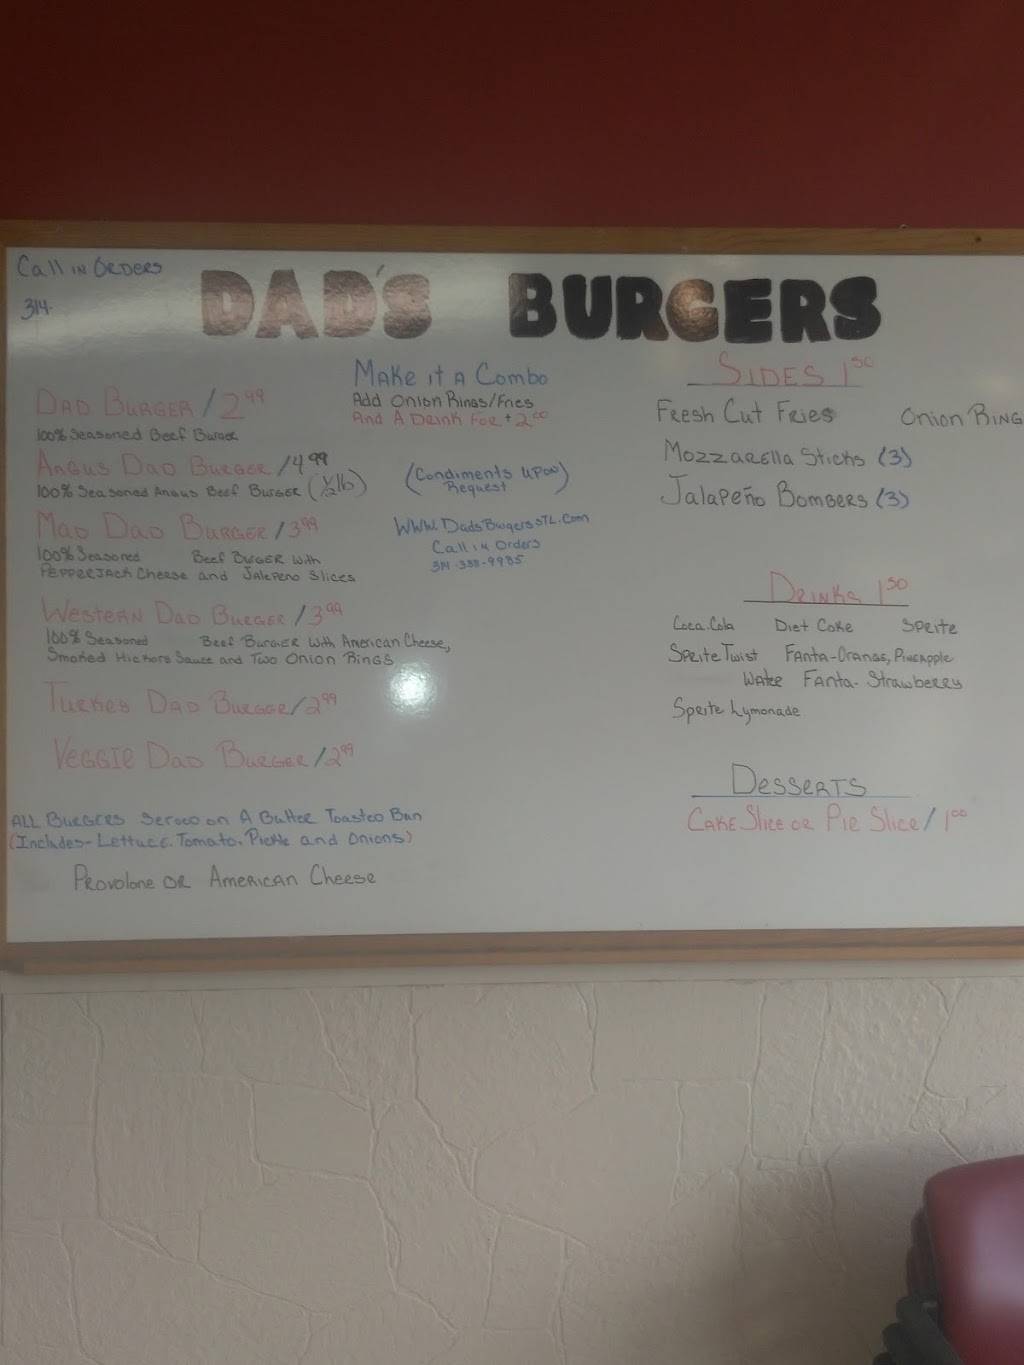 Call in Orders
314-
DAD'S BURGERS
Make it a Combo
Add Onion Rings/Fries
And A Drink For +2.00
(Condiments upon Request)
www.DadsBurgersSTL.com
Call in Orders
Dad Burger / 2.99
100% Seasoned Beef Burger
Angus Dad Burger / 4.99
100% Seasoned Angus Beef Burger (1/2 lb)
Mad Dad Burger / 3.99
100% Seasoned Beef Burger with
Pepperjack Cheese and Jalepeno Slices
Western Dad Burger / 3.99
100% Seasoned Beef Burger with American Cheese,
Smoked Hickory Sauce and Two Onion Rings
Turkey Dad Burger / 2.99
Veggie Dad Burger / 2.99
All Burgers Served on A Butter Toasted Bun
(Includes-Lettuce, Tomato, Pickle and Onions)
Provolone or American Cheese
Sides 1.50
Fresh Cut Fries Onion Ring
Mozzarella Sticks (3)
Jalapeño Bombers (3)
Drinks 1.50
Coca.Cola Diet Coke Sprite
Sprite Twist Fanta-Orange, Pineapple
Water Fanta-Strawberry
Sprite Lymonade
Desserts
Cake Slice or Pie Slice / 1.00